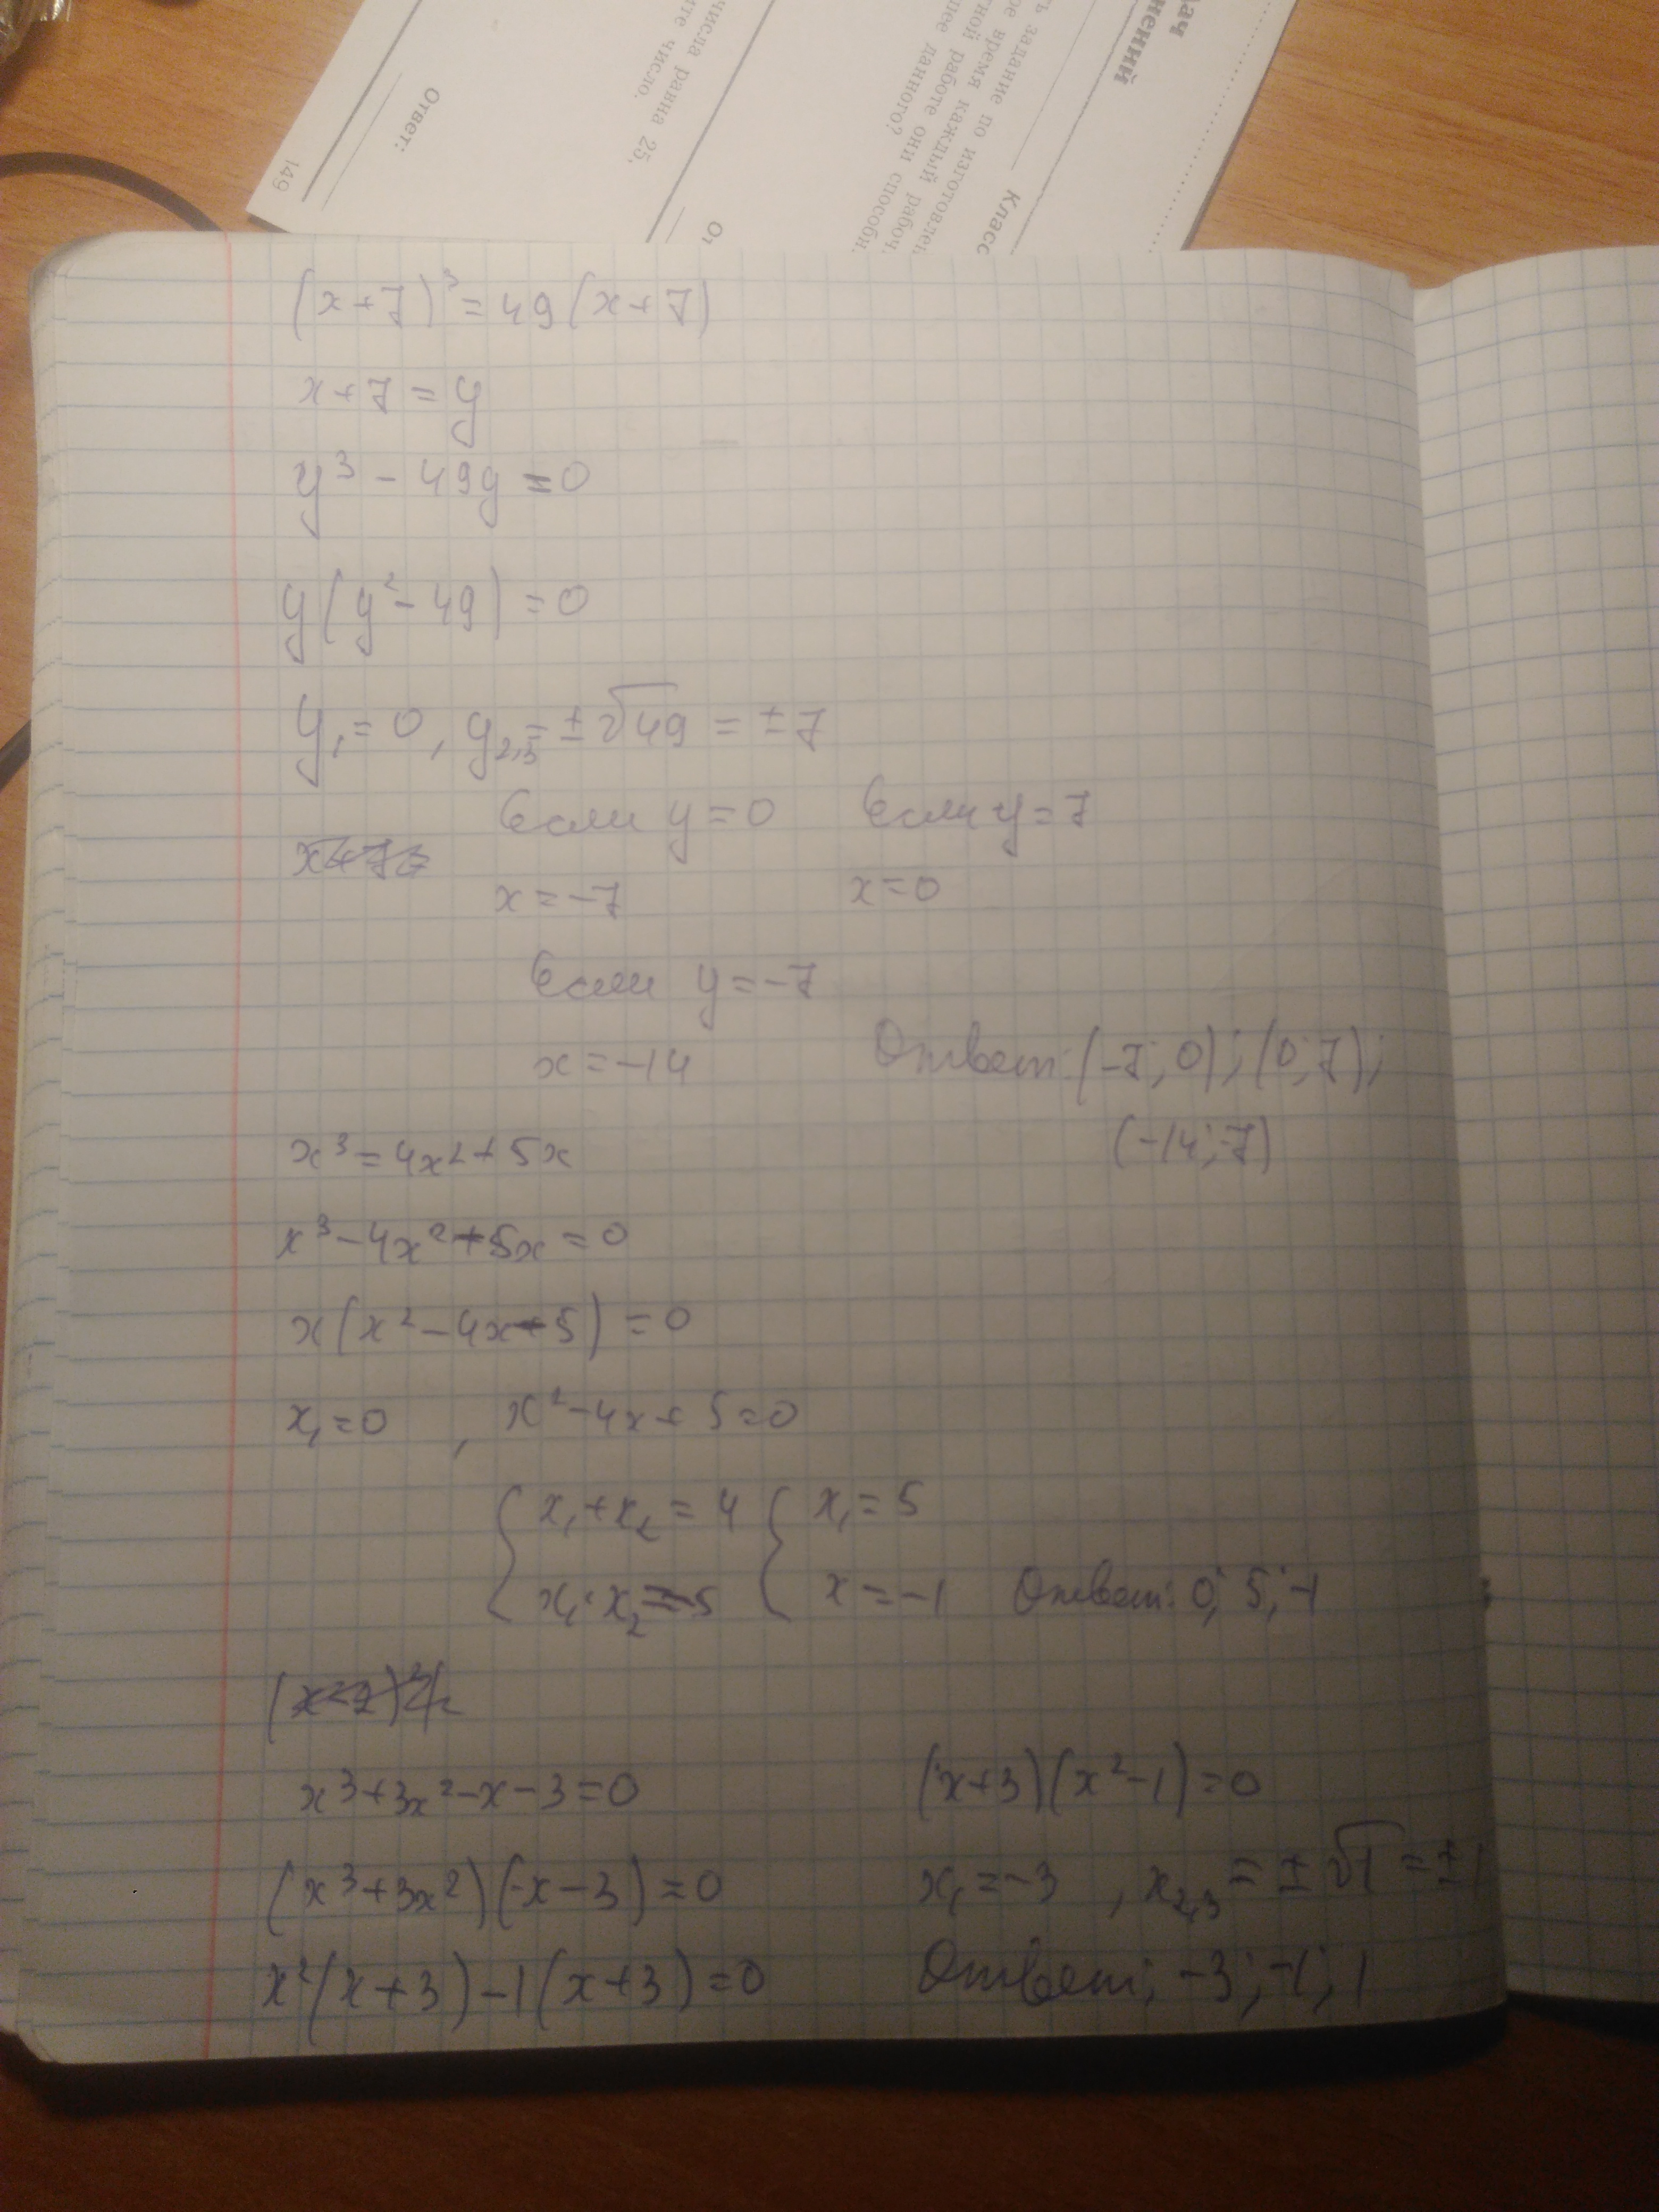 дач
нений
Класс
ь задание по изготовлен
ое время каждый рабоч
тной работе они способн
нее данного?
От
числа равна 25.
ите число.
Ответ:
149
(x+7)³=49(x+7)
x+7=y
y³-49y=0
y(y²-49)=0
y₁=0, y₂,₃=±√49=±7
Если y=0 Если y=7
x=-7 x=0
Если y=-7
x=-14 Ответ: (-7; 0); (0; 7);
(-14; -7)
x³=4x²+5x
x³-4x²-5x=0
x(x²-4x-5)=0
x₁=0 , x²-4x+5=0
{ x₁+x₂=4 { x₁=5
x₁·x₂=-5 x=-1 Ответ: 0; 5; -1
x³+3x²-x-3=0
(x³+3x²)(-x-3)=0
x²(x+3)-1(x+3)=0
(x+3)(x²-1)=0
x₁=-3 , x₂,₃=±√1=±1
Ответ: -3; -1; 1